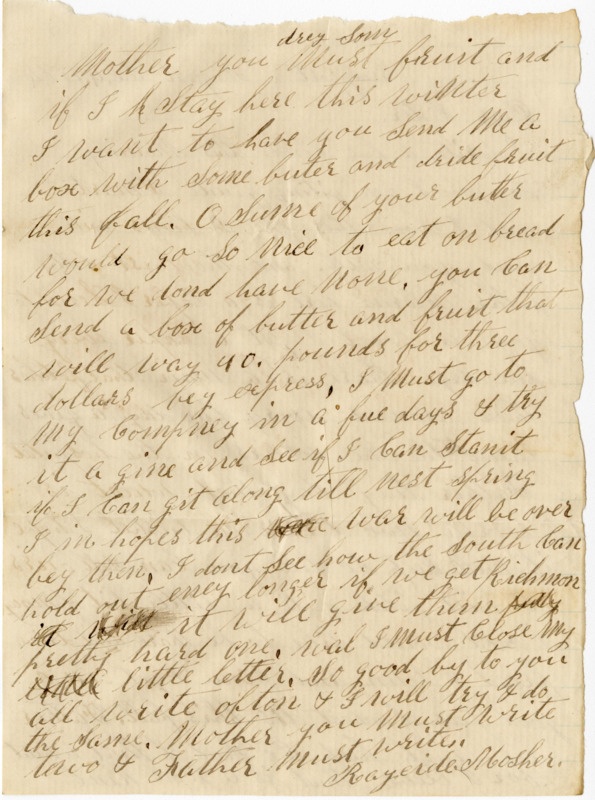 drey Som
Mother you Must fruit and
if I Stay here this winter
I want to have you Send Me a
box with Some buter and dride fruit
this fall. O Sume of your butter
would go So Nice to eat on bread
for we dond have None. you Can
Send a box of butter and fruit that
will way 40. pounds for three
dollars bey express, I Must go to
My Compney in a fue days & try
it a gine and See if I Can Stanit
if I Can git along till Nest Spring
I in hopes this war will be over
bey then, I dont See how the South Can
hold out eney longer if we get Richmon
it will give them
pretty hard one. wal I Must Close My
little letter. So good by to you
all write ofton & I will try & do
the Same. Mother you Must write
towo & Father Must writen
Mosher.